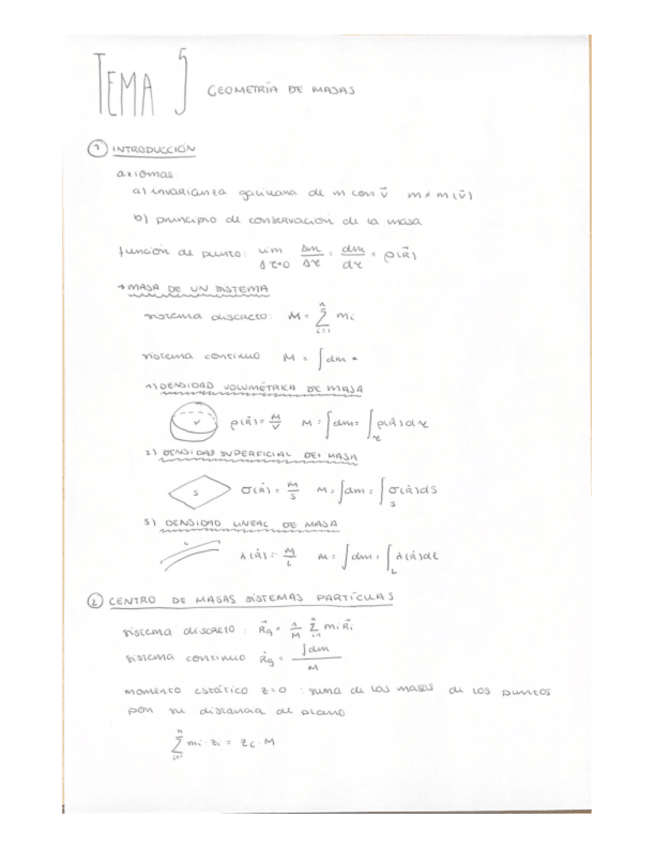 TEMA 5 GEOMETRÍA DE MASAS
① INTRODUCCIÓN
axiomas:
a) invarianza galileana de m con v⃗ m ≠ m(v⃗)
b) principio de conservación de la masa
función de punto: lim Δτ→0 Δm/Δτ = dm/dτ = ρ(R⃗)
→ MASA DE UN SISTEMA
sistema discreto: M = Σ_{i=1}^{n} mi
sistema continuo M = ∫dm
1) DENSIDAD VOLUMÉTRICA DE MASA
V ρ(R⃗) = M/V M = ∫dm = ∫_τ ρ(R⃗)dτ
2) DENSIDAD SUPERFICIAL DEL MASA
S σ(R⃗) = M/S M = ∫dm = ∫_S σ(R⃗)dS
3) DENSIDAD LINEAL DE MASA
L λ(R⃗) = M/L M = ∫dm = ∫_L λ(R⃗)dl
② CENTRO DE MASAS SISTEMAS PARTÍCULAS
sistema discreto: R⃗g = 1/M Σ_{i=1}^{n} mi R⃗i
sistema continuo R⃗g = ∫dm / M
momento estático z=0 : suma de las masas de los puntos
por su distancia al plano
Σ_{i=1}^{n} mi · zi = zc · M